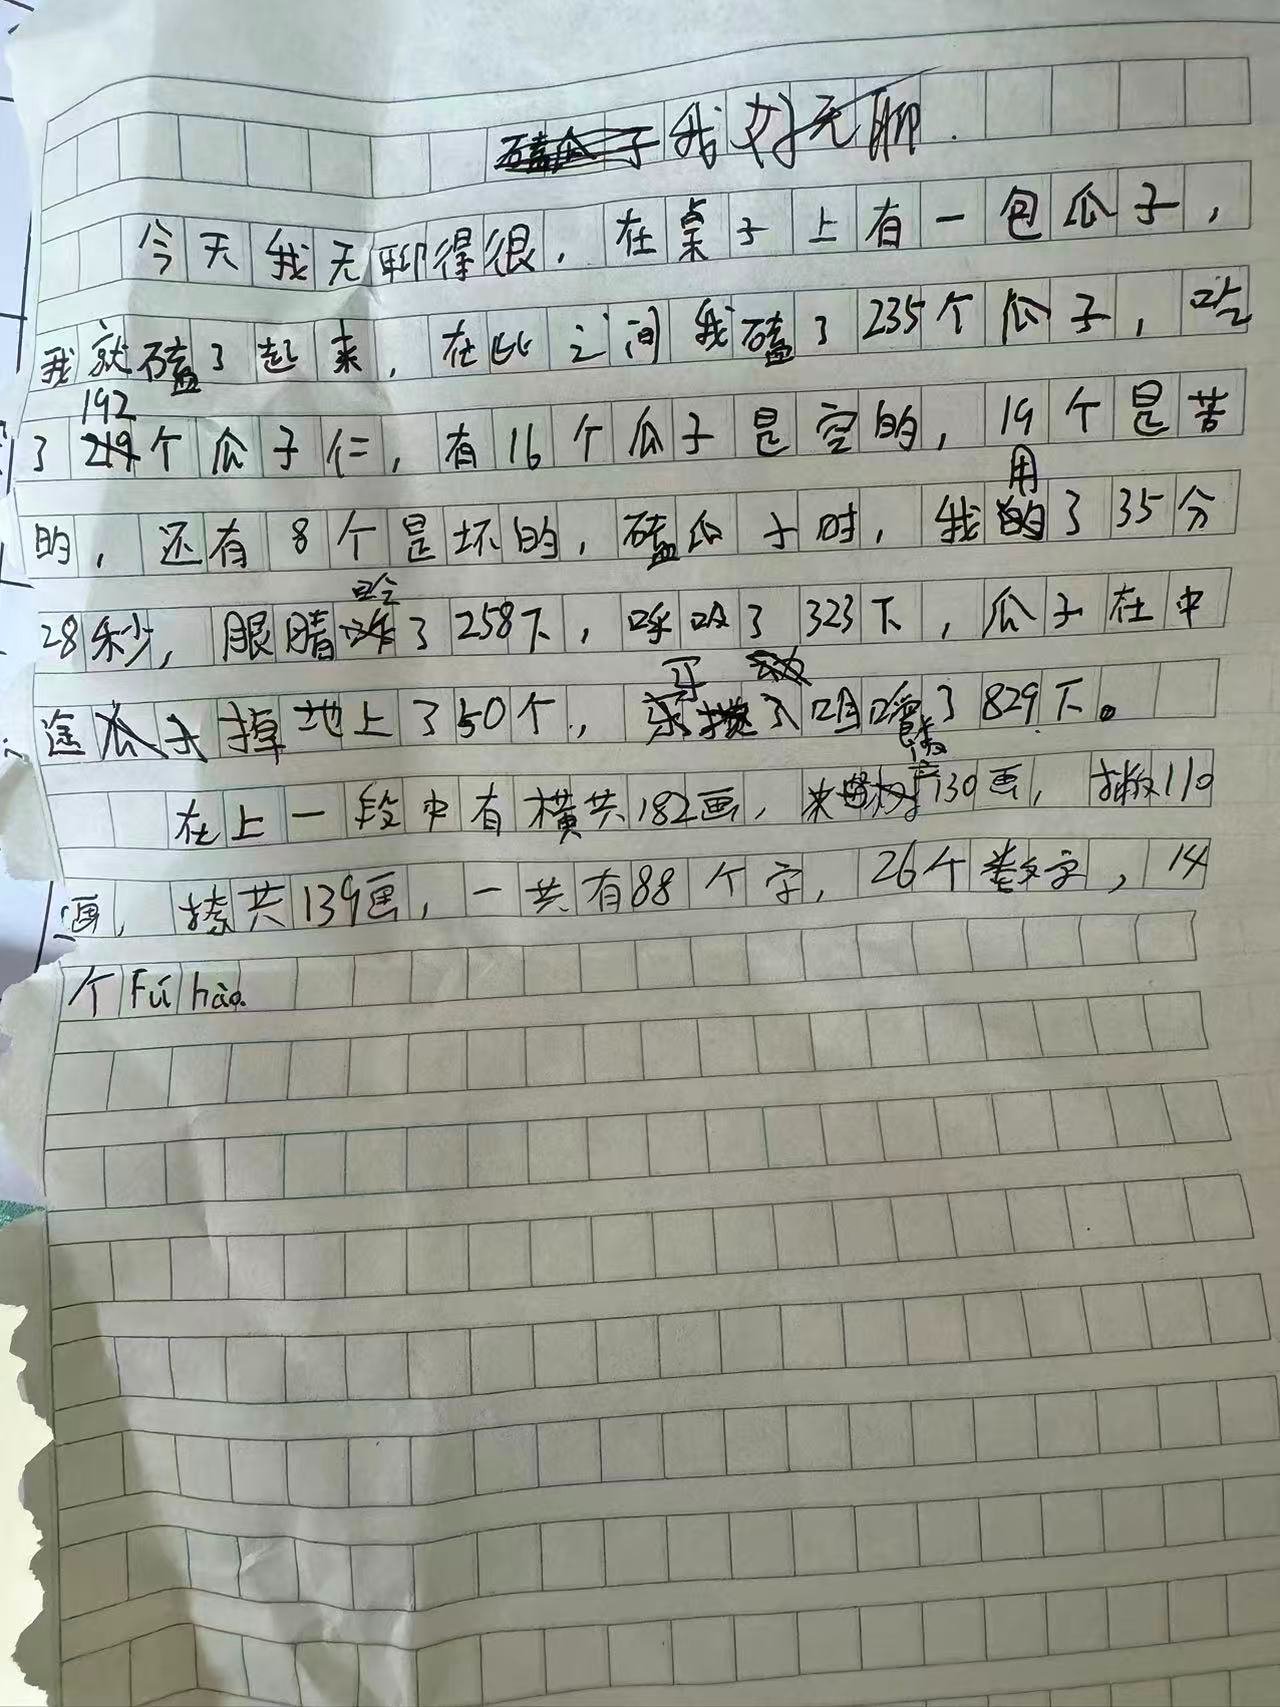 我好无聊.
今天我无聊得很．在桌子上有一包瓜子，
我就磕了起来，在此之间我磕了235个瓜子，吃
了192个瓜子仁，有16个瓜子是空的，19个是苦
的，还有8个是坏的，磕瓜子时，我用了35分
28秒，眼睛眨了258下，呼吸了323下，瓜子在中
途掉地上了50个，牙咀嚼了829下。
在上一段中有横共182画，130画，撇110
画，捺共139画，一共有88个字，26个数字，14
个Fú hào.